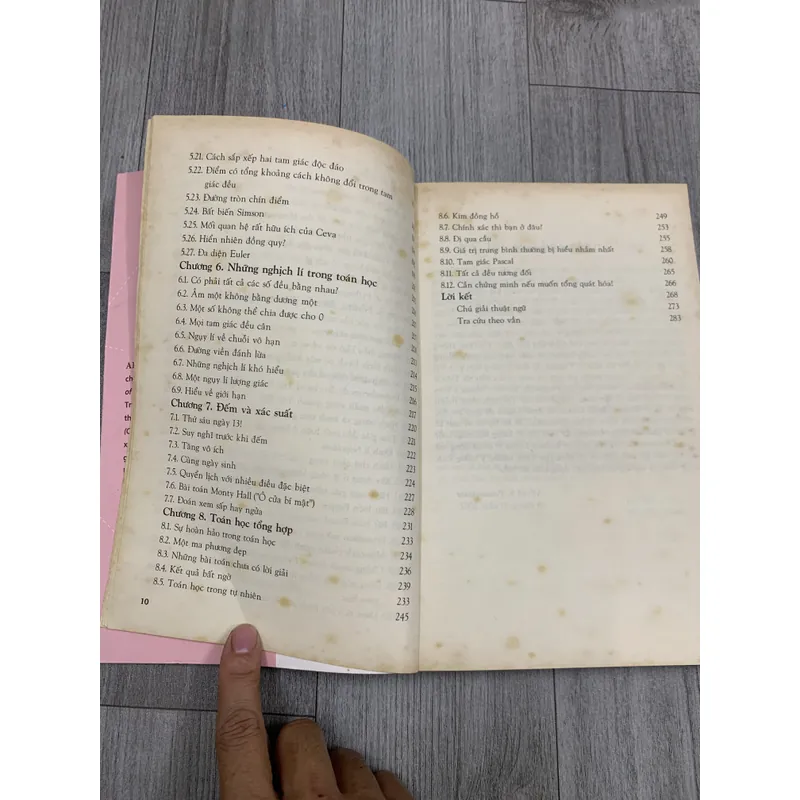 5.21. Cách sắp xếp hai tam giác độc đáo
5.22. Điểm có tổng khoảng cách không đổi trong tam
giác đều
5.23. Đường tròn chín điểm
5.24. Bất biến Simson
5.25. Mối quan hệ rất hữu ích của Ceva
5.26. Hiển nhiên đồng quy?
5.27. Đa diện Euler
Chương 6. Những nghịch lí trong toán học
6.1. Có phải tất cả các số đều bằng nhau?
6.2. Âm một không bằng dương một
6.3. Một số không thể chia được cho 0
6.4. Mọi tam giác đều cân
6.5. Ngụy lí về chuỗi vô hạn
6.6. Đường viền đánh lừa
6.7. Những nghịch lí khó hiểu
6.8. Một ngụy lí lượng giác
6.9. Hiểu về giới hạn
Chương 7. Đếm và xác suất
7.1. Thứ sáu ngày 13!
7.2. Suy nghĩ trước khi đếm
7.3. Tăng vô ích
7.4. Cùng ngày sinh
7.5. Quyển lịch với nhiều điều đặc biệt
7.6. Bài toán Monty Hall ("Ô cửa bí mật")
7.7. Đoán xem sấp hay ngửa
Chương 8. Toán học tổng hợp
8.1. Sự hoàn hảo trong toán học
8.2. Một ma phương đẹp
8.3. Những bài toán chưa có lời giải
8.4. Kết quả bất ngờ
8.5. Toán học trong tự nhiên
214
215
216
217
220
221
222
223
224
227
228
231
233
234
236
239
233
245
10
8.6. Kim đồng hồ 249
8.7. Chính xác thì bạn ở đâu? 253
8.8. Đi qua cầu 255
8.9. Giá trị trung bình thường bị hiểu nhầm nhất 258
8.10. Tam giác Pascal 260
8.11. Tất cả đều tương đối 265
8.12. Cần chứng minh nếu muốn tổng quát hóa! 266
Lời kết 268
Chú giải thuật ngữ 273
Tra cứu theo vần 283